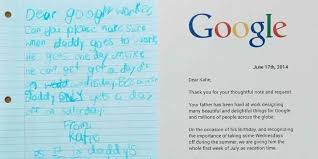 Dear google worker
Can you please make sure
when daddy goes to work
he gets one day off. like
he can get a day off
on a wednesday. Because
daddy ONLY gets a day
off on Saturday.
From
Katie
It is daddys
Google
June 17th, 2014
Dear Katie,
Thank you for your thoughtful note and request.
Your father has been hard at work designing
many beautiful and delightful things for Google
and millions of people across the globe.
On the occasion of his birthday, and recognizing
the importance of taking some Wednesdays
off during the summer, we are giving him the
whole first week of July as vacation time.